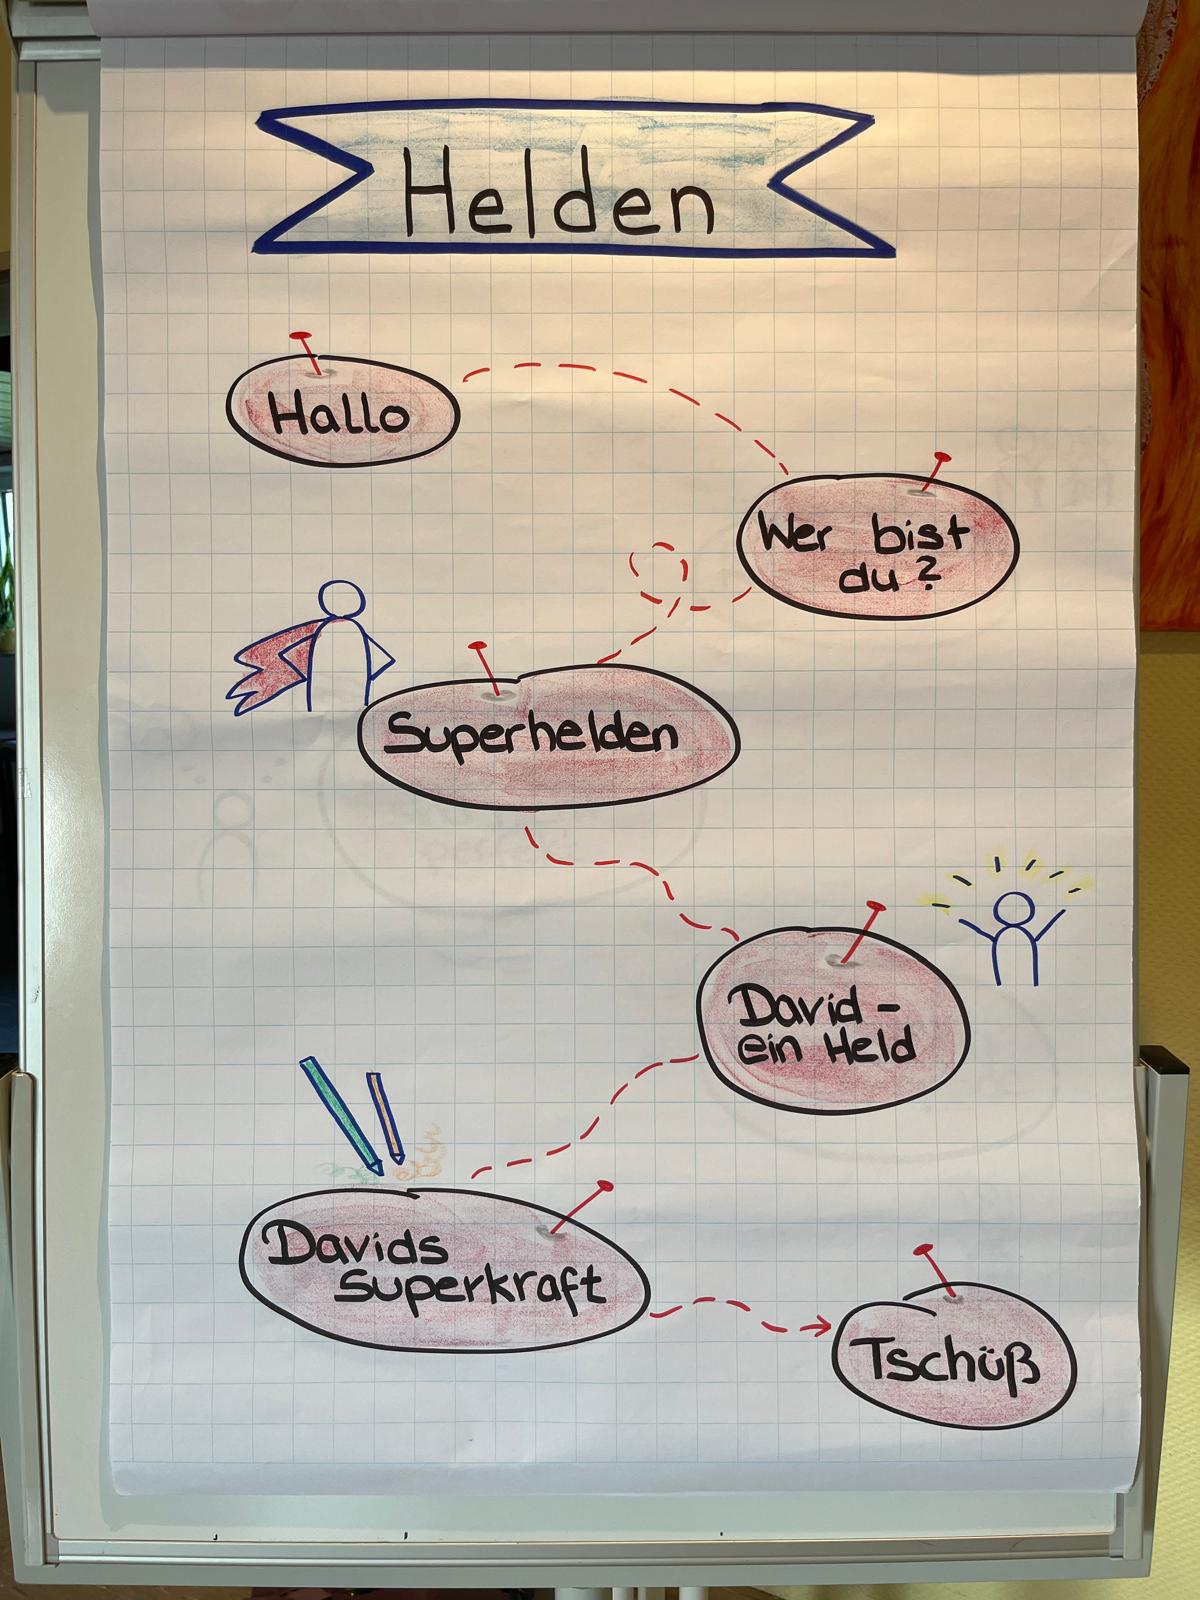 Helden
Hallo
Wer bist
du?
Superhelden
David -
ein Held
Davids
Superkraft
Tschüß